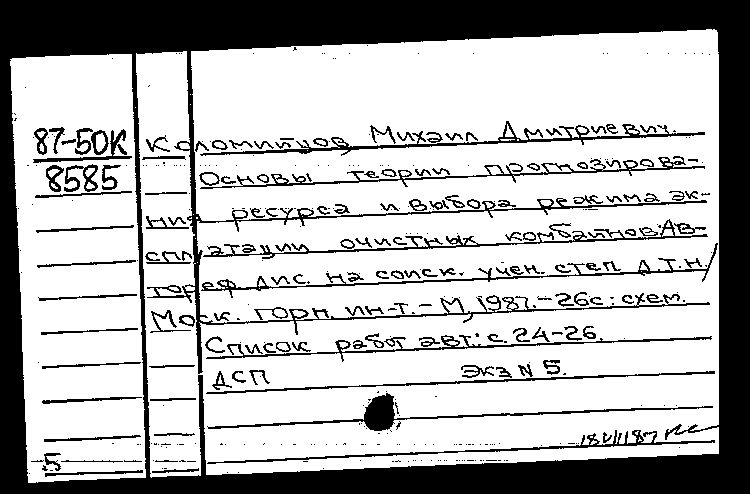 87-50К Коломийцов, Михаил Дмитриевич.
8585 Основы теории прогнозирова-
ния ресурса и выбора режима эк-
сплуатации очистных комбайнов: Ав-
тореф. дис. на соиск. учен. степ. д.т.н./
Моск. горн. ин-т. - М, 1987. - 26с: схем.
Список работ авт.: с. 24-26.
ДСП Экз N 5.
5